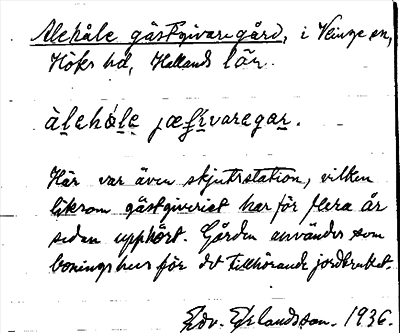 Alehåle gästgivaregård, i Veinge sn,
Höks hd, Hallands län.
àlehá̀le jæʃi̱varegar.
Här var även skjutsstation, vilken
liksom gästgiveriet har för flera år
sedan upphört. Gården användes som
boningshus för det tillhörande jordbruket.
Edv. Erlandsson. 1936.